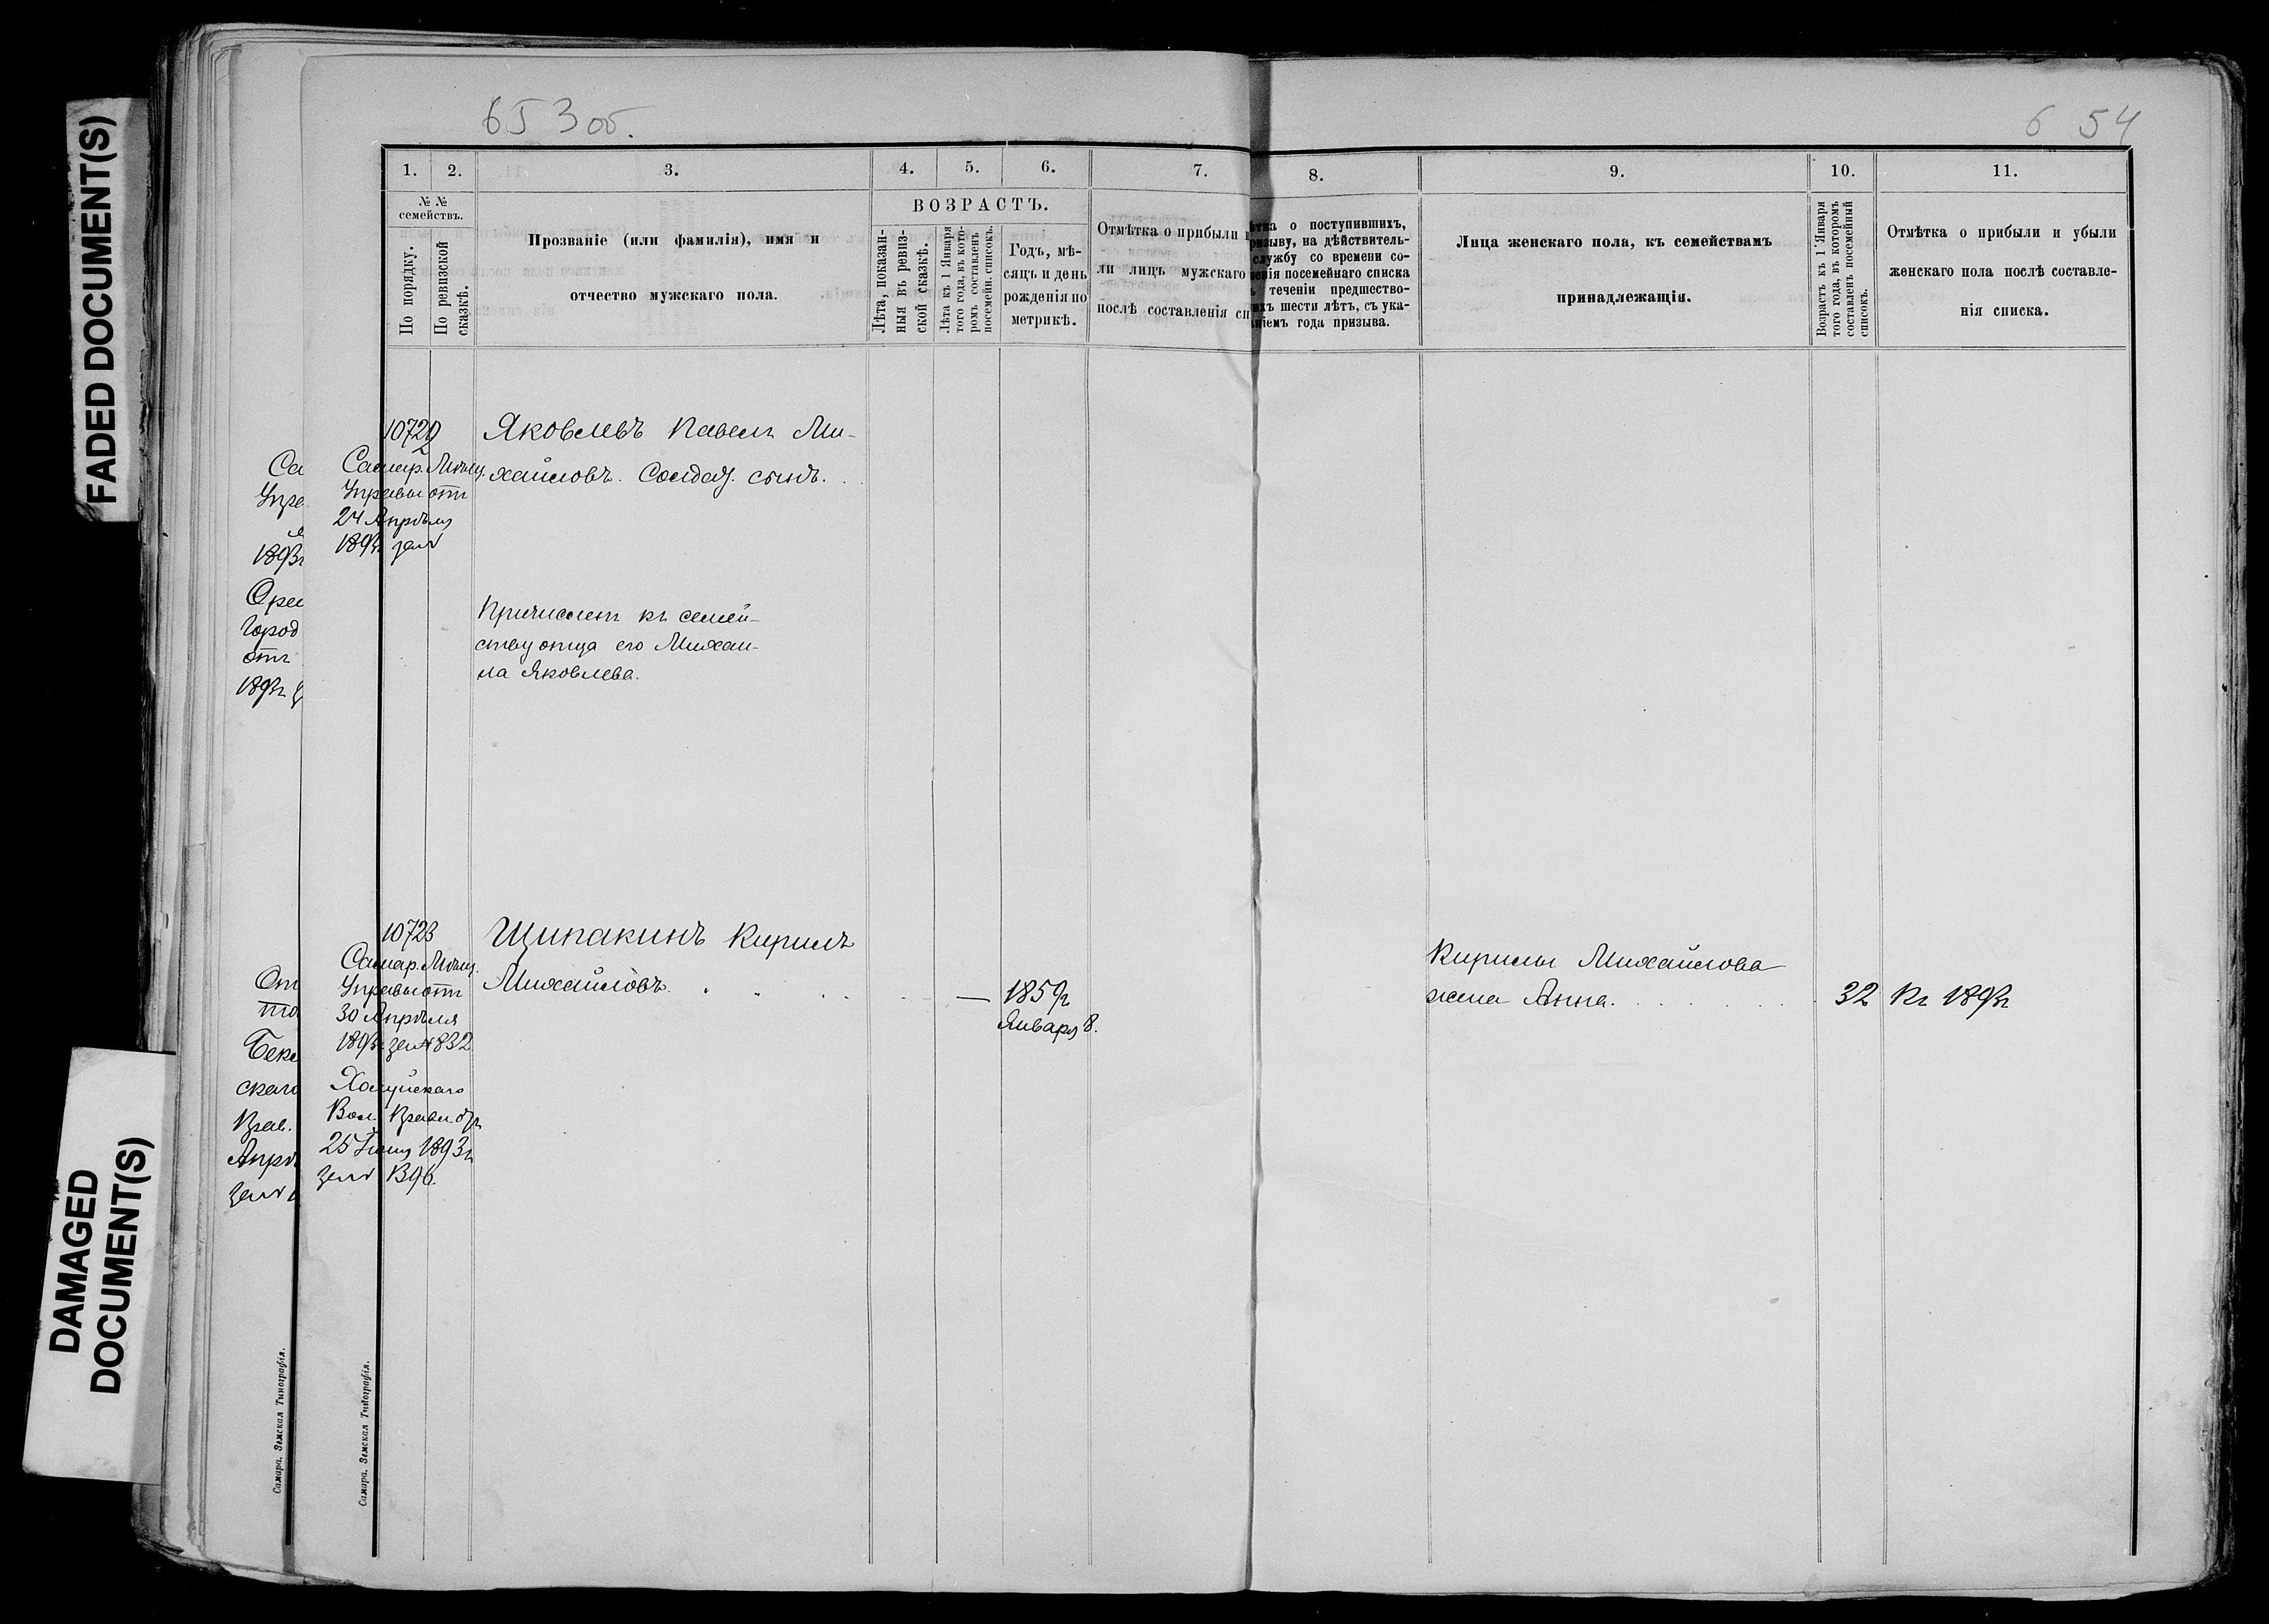 FADED DOCUMENT(S)
DAMAGED
DOCUMENT(S)
653 об.
6 54
1. 2. 3. 4. 5. 6. 7. 8. 9. 10. 11.
№ №
семействъ.
По порядку.
По ревизской
сказкѣ.
Прозваніе (или фамилія), имя и
отчество мужскаго пола.
ВОЗРАСТЪ.
Лѣта, показан-
ныя въ ревиз-
ской сказкѣ.
Лѣта къ 1 Января
того года, въ кото-
ромъ составленъ
посемейн. списокъ.
Годъ, мѣ-
сяцъ и день
рожденія по
метрикѣ.
Отмѣтка о прибыли
ли лицъ мужскаго
послѣ составленія сп
тка о поступившихъ,
ризыву, на дѣйствитель-
службу со времени со-
енія посемейнаго списка
теченіи предшество-
ихъ шести лѣтъ, съ ука-
ніемъ года призыва.
Лица женскаго пола, къ семействамъ
принадлежащія.
Возрастъ къ 1 Января
того года, въ которомъ
составленъ посемейный
списокъ.
Отмѣтка о прибыли и убыли
женскаго пола послѣ составле-
нія списка.
10722
Самар. Мѣщ.
Управы отъ
24 Апрѣля
1893г за №
Яковлевъ Павелъ Ми-
хайловъ. Солдат. сынъ.
Причисленъ къ семей-
ству отца его Михаи-
ла Яковлева.
10723
Самар. Мѣщ.
Управы отъ
30 Апрѣля
1893г за № 832
Холуйскаго
Вол. Правл. отъ
25 Іюня 1893г
за №
Щипакинъ Кирилъ
Михайловъ.
1859г
Января 8.
Кирилы Михайлова
жена Анна.
32
Къ 1893г
Са
Упра
1893г
Орен
Город
отъ
1893г
От
Беке
скаго
Прав.
Апрѣ
за №
Самара. Земская Типографія.
Самара. Земская Типографія.